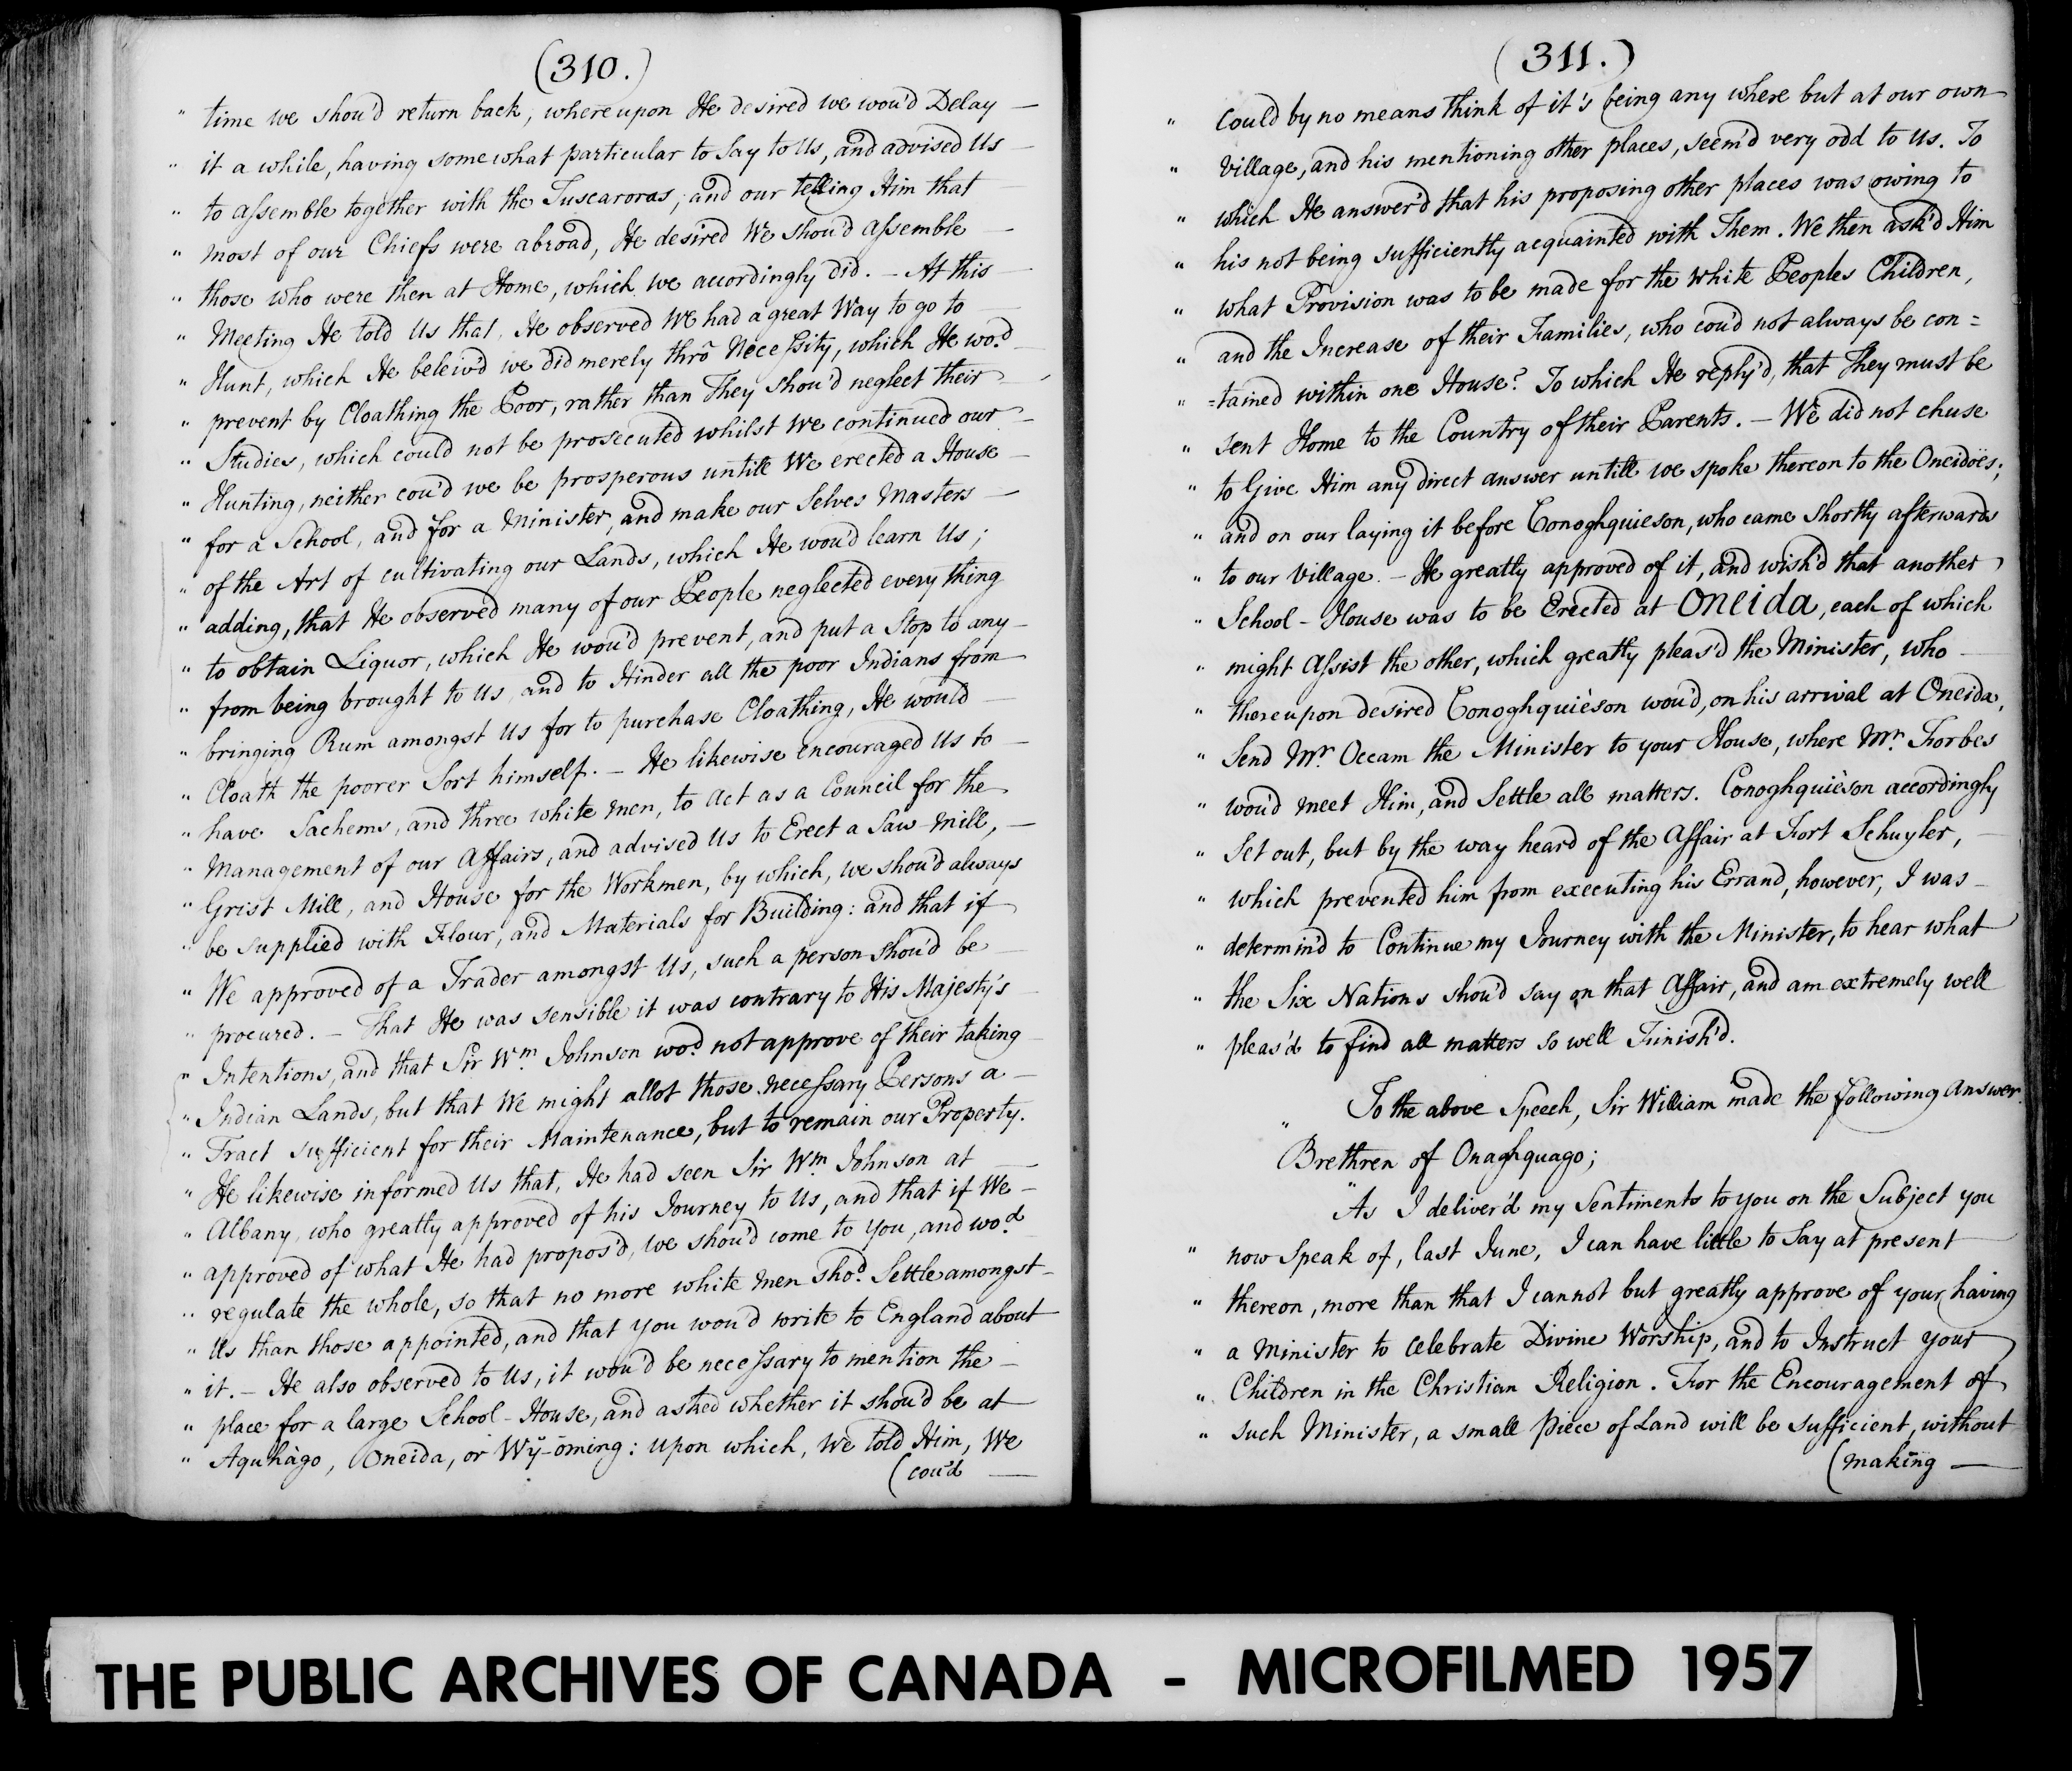 (310.)
" time we shou'd return back, whereupon He desired we wou'd Delay —
" it a while, having somewhat particular to Say to Us, and advised Us —
" to assemble together with the Tuscaroras; and our telling Him that
" most of our Chiefs were abroad, He desired We shou'd assemble —
" those who were then at Home, which we accordingly did. — At this —
" Meeting He told Us that, He observed We had a great Way to go to —
" Hunt, which He beleiv'd we did merely thrô Necessity, which He wo.d
" prevent by Cloathing the Poor, rather than They shou'd neglect their —
" Studies, which could not be prosecuted whilst we continued our —
" Hunting, neither cou'd we be prosperous untill We erected a House —
" for a School, and for a Minister, and make our Selves Masters —
" of the Art of cultivating our Lands, which He wou'd learn Us;
" adding, that He observed many of our People neglected every thing
" to obtain Liquor, which He wou'd prevent, and put a Stop to any —
" from being brought to Us, and to Hinder all the poor Indians from
" bringing Rum amongst Us for to purchase Cloathing, He would —
" Cloath the poorer Sort himself. — He likewise encouraged Us to —
" have Sachems, and three white men, to Act as a Council for the
" Management of our Affairs, and advised Us to Erect a Saw-Mill, —
" Grist Mill, and House for the Workmen, by which, we shou'd always
" be supplied with Flour, and Materials for Building: and that if
" We approved of a Trader amongst Us, such a person shou'd be —
" procured. — That He was sensible it was contrary to His Majesty's
" Intentions, and that Sir Wm. Johnson wo.d not approve of their taking
" Indian Lands, but that We might allot those necessary Persons a —
" Tract sufficient for their Maintenance, but to remain our Property.
" He likewise informed Us that, He had seen Sir Wm. Johnson at —
" Albany, who greatly approved of his Journey to Us, and that if We —
" approved of what He had propos'd, we shou'd come to you, and wo.d
" regulate the whole, so that no more white men sho.d Settle amongst —
" Us than those appointed, and that you wou'd write to England about
" it. — He also observed to Us, it wou'd be necessary to mention the —
" place for a large School-House, and asked whether it shou'd be at
" Aquhàgo, Oneida, or Wÿ-ōming: Upon which, We told Him, We
(cou'd —
(311.)
" could by no means think of it's being any where but at our own
" Village, and his mentioning other places, seem'd very odd to us. To
" which He answer'd that his proposing other places was owing to
" his not being sufficiently acquainted with Them. We then ask'd Him
" what Provision was to be made for the White Peoples Children,
" and the Increase of their Families, who cou'd not always be con=
" =tained within one House? To which He reply'd, that They must be
" sent Home to the Country of their Parents. — We did not chuse
" to Give Him any direct answer untill we spoke thereon to the Oneidöes;
" and on our laying it before Conoghquieson, who came shortly afterwards
" to our Village. — He greatly approved of it, and wish'd that another
" School-House was to be Erected at Oneida, each of which
" might Assist the other, which greatly pleas'd the Minister, who —
" thereupon desired Conoghquièson wou'd, on his arrival at Oneida,
" Send Mr. Occam the Minister to your House, where Mr. Forbes
" wou'd meet Him, and Settle all matters. Conoghquièson accordingly
" Set out, but by the way heard of the Affair at Fort Schuyler, —
" which prevented him from executing his Errand, however, I was —
" determin'd to Continue my Journey with the Minister, to hear what
" the Six Nations shou'd say on that Affair, and am extremely well
" pleas'd to find all matters so well Finish'd.
" To the above Speech, Sir William made the following Answer.
Brethren of Onaghquago;
" As I deliver'd my Sentiments to you on the Subject you
" now Speak of, last June, I can have little to Say at present
" thereon, more than that I cannot but greatly approve of your having
" a Minister to celebrate Divine Worship, and to Instruct your
" Children in the Christian Religion. For the Encouragement of
" such Minister, a small Piece of Land will be sufficient, without
(making —
THE PUBLIC ARCHIVES OF CANADA - MICROFILMED 1957